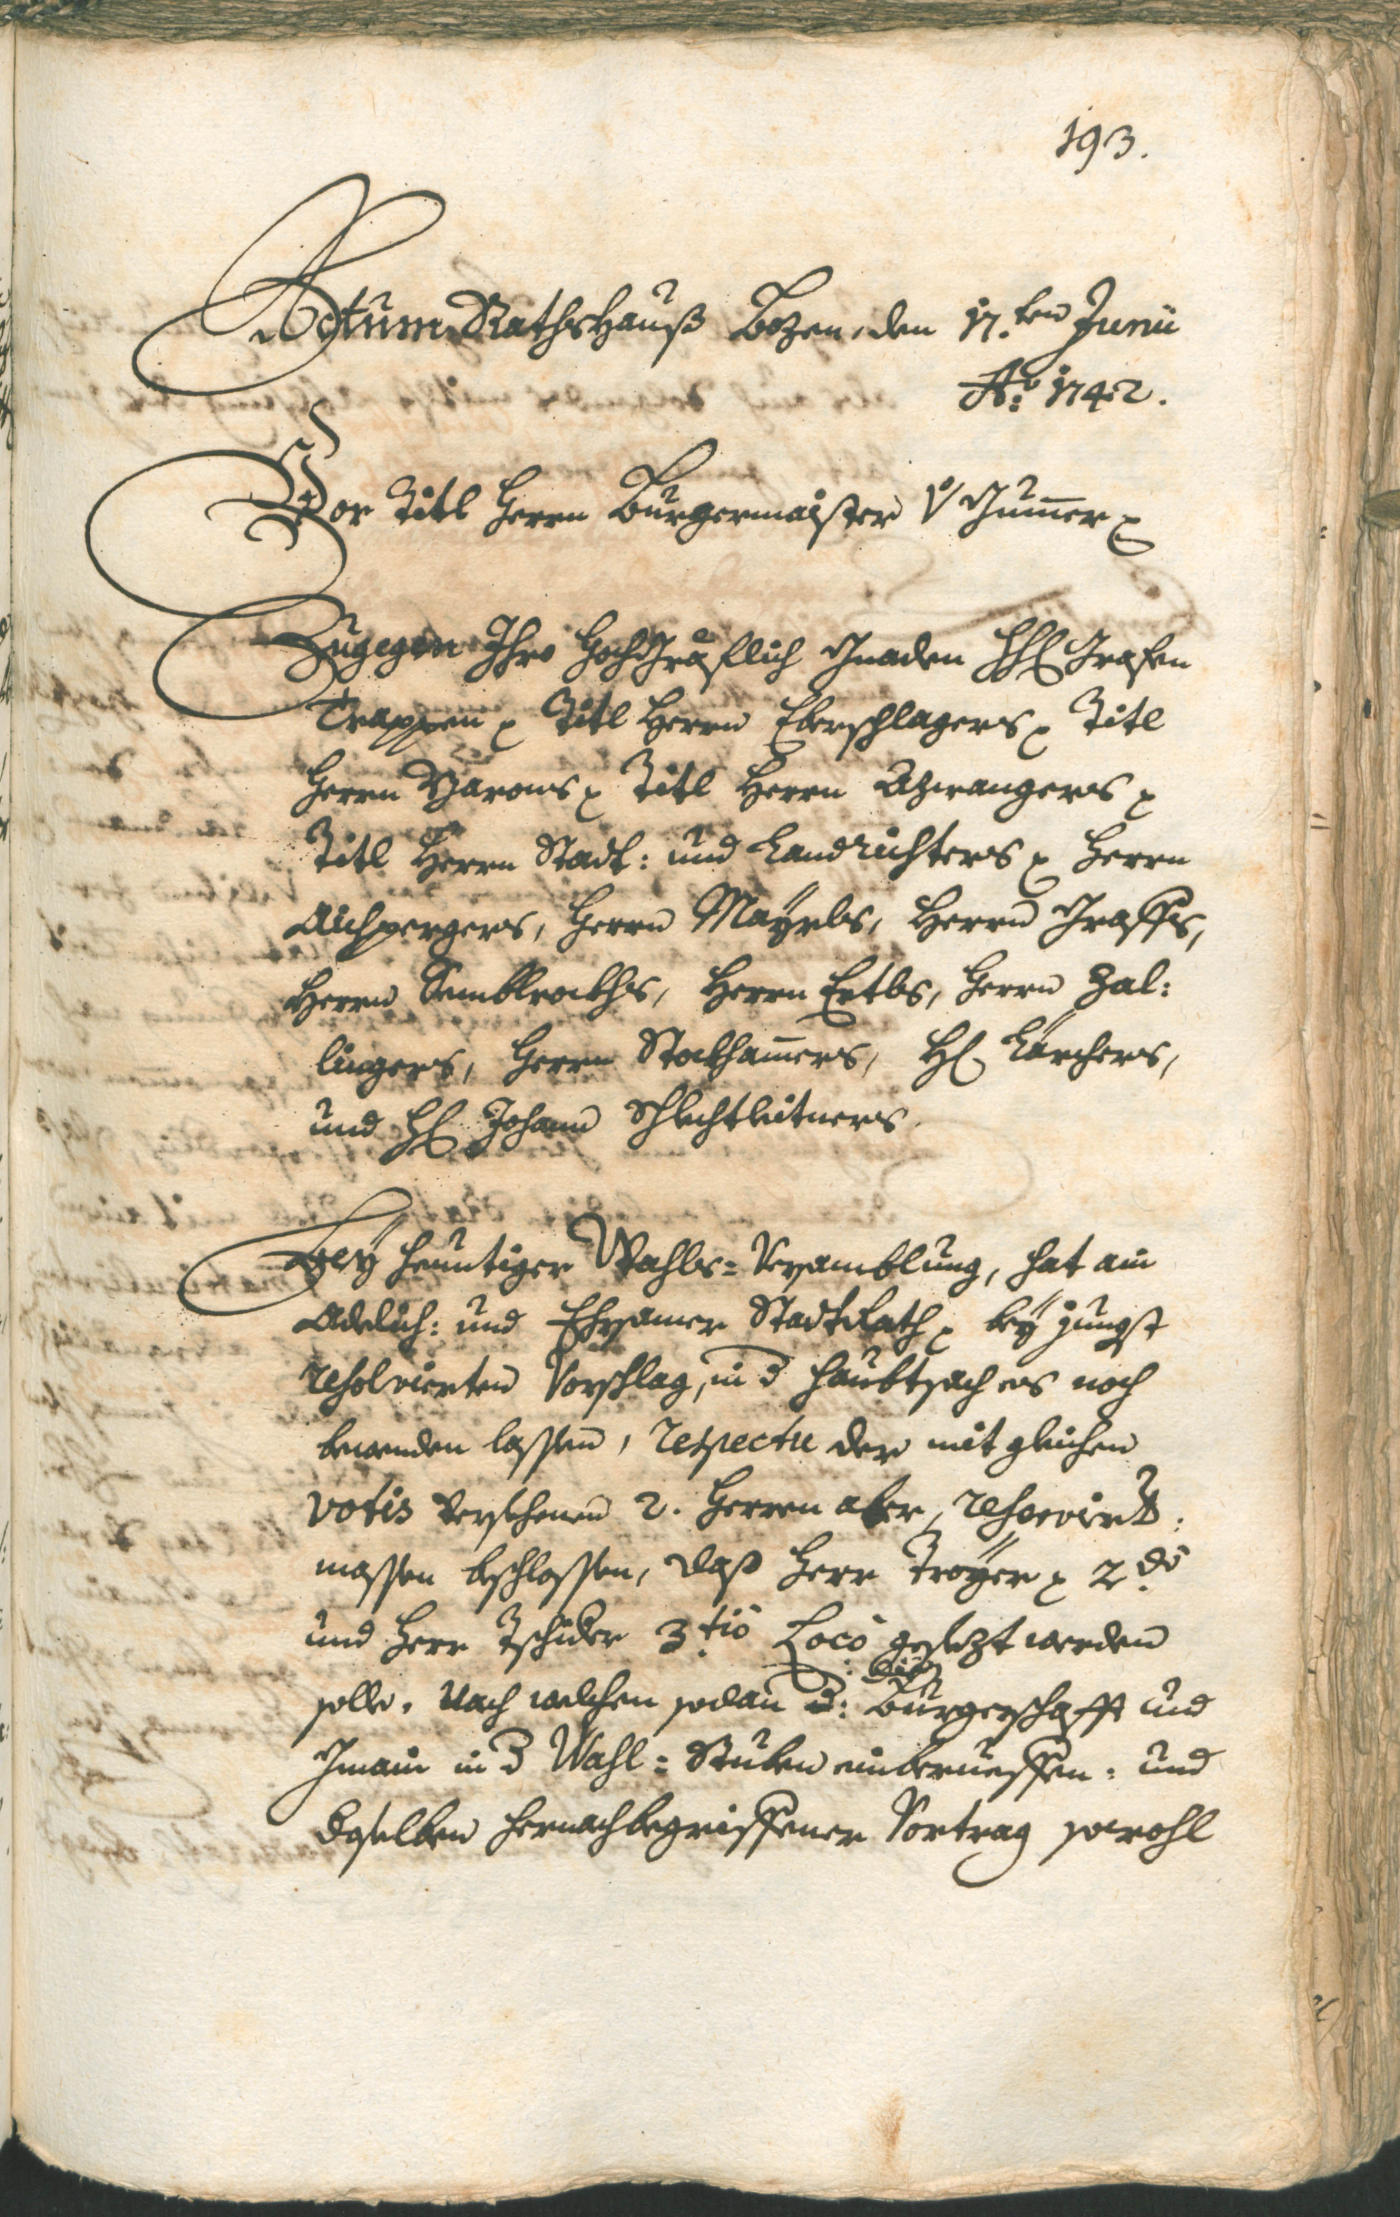 193.
Actum Rathshauß Bozen, den 17.ten Junii
Ao: 1742.
Vor Titl Herrn Burgermaister V Gum̄er
Zugegen Ihro Hochgräflich Gnaden HH Grafen
Trappen Titl Herrn Eberschlagers Titl
Herrn Barons Titl Herrn Azwangers
Titl Herrn Stadt: und Landrichters Herrn
Aichpergers, Herrn Mayrls, Herrn Graffs,
Herrn Semblrockhs, Herrn Ertls, Herrn Zal:
lingers, Herrn Stockham̄ers, H Kärchers,
und H Johann Schlechtleitners.
Bey heuntiger Wahls=Versamblung, hat ain
Adelich: und Ehrsamer Stadtrath bey jüngst
resolvierten Vorschlag, in d Haubtsach es noch
bewenden lassen, respectu der mit gleichen
votis versehenen 2. Herren aber, resolvirt:
massen beschlossen, daß Herr Troyer 2.do
und Herr Tschider 3.tio Loco gesezt werden
solle. Nach welchen sodan̄ d: Burgerschafft und
Gmain in d Wahl=Stuben einberueffen: und
deselben hernachbegriffener Vortrag sowohl